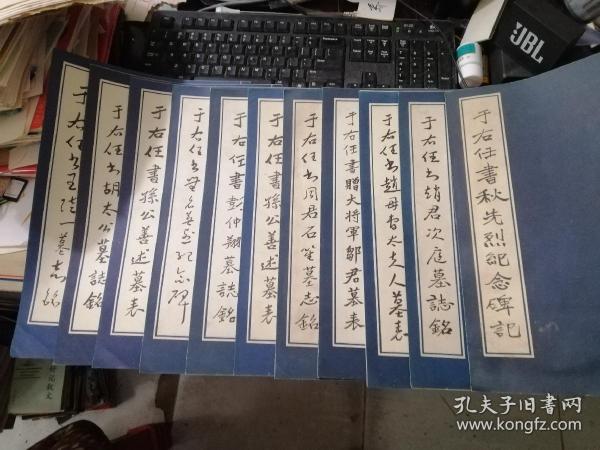 于右任书秋先烈纪念碑记
于右任书赵君次庭墓誌銘
于右任书趙母曾太夫人墓表
于右任書贈大将軍鄒君墓表
于右任书周君石笙墓志銘
于右任書孫公善述墓表
于右任書彭仲翔墓誌銘
于右任书無名英雄纪念碑
于右任書孫公善述墓表
于右任书胡太公墓誌銘
于右任书王陆一墓志銘
JBL
孔夫子旧书网
www.kongfz.com